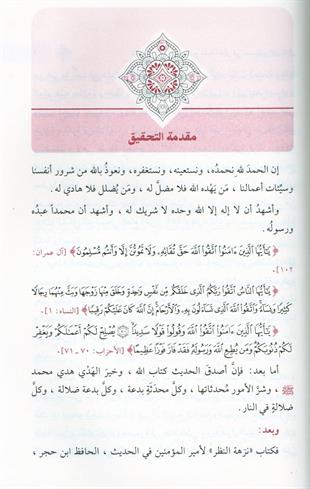 مقدمة التحقيق
إن الحمدَ لله نحمدُه، ونستعينه، ونستغفره، ونعوذُ بالله من شرور أنفسنا
وسيِّئات أعمالنا ، مَن يَهْده الله فلا مضلَّ له ، ومَن يُضلل فلا هادي له.
وأشهدُ أن لا إله إلا الله وحده لا شريك له ، وأشهد أن محمداً عبدُه
ورسولُه.
﴿ يَٰٓأَيُّهَا ٱلَّذِينَ ءَامَنُوا۟ ٱتَّقُوا۟ ٱللَّهَ حَقَّ تُقَاتِهِۦ وَلَا تَمُوتُنَّ إِلَّا وَأَنتُم مُّسْلِمُونَ ﴾ [آل عمران:
١٠٢].
﴿ يَٰٓأَيُّهَا ٱلنَّاسُ ٱتَّقُوا۟ رَبَّكُمُ ٱلَّذِى خَلَقَكُم مِّن نَّفْسٍ وَٰحِدَةٍ وَخَلَقَ مِنْهَا زَوْجَهَا وَبَثَّ مِنْهُمَا رِجَالًا
كَثِيرًا وَنِسَآءً وَٱتَّقُوا۟ ٱللَّهَ ٱلَّذِى تَسَآءَلُونَ بِهِۦ وَٱلْأَرْحَامَ إِنَّ ٱللَّهَ كَانَ عَلَيْكُمْ رَقِيبًا ﴾ [النساء: ١].
﴿ يَٰٓأَيُّهَا ٱلَّذِينَ ءَامَنُوا۟ ٱتَّقُوا۟ ٱللَّهَ وَقُولُوا۟ قَوْلًا سَدِيدًا ۝ يُصْلِحْ لَكُمْ أَعْمَٰلَكُمْ وَيَغْفِرْ
لَكُمْ ذُنُوبَكُمْ وَمَن يُطِعِ ٱللَّهَ وَرَسُولَهُۥ فَقَدْ فَازَ فَوْزًا عَظِيمًا ﴾ [الأحزاب: ٧٠ ـ ٧١].
أما بعد: فإن أصدقَ الحديث كتاب الله ، وخيرَ الهَدْي هدي محمد
ﷺ ، وشرَّ الأمور مُحدثاتها ، وكلَّ محدَثَة بدعة ، وكلَّ بدعة ضلالة ، وكلَّ
ضلالة في النار.
وبعد:
فكتاب «نزهة النظر» لأمير المؤمنين في الحديث ، الحافظ ابن حجر ،